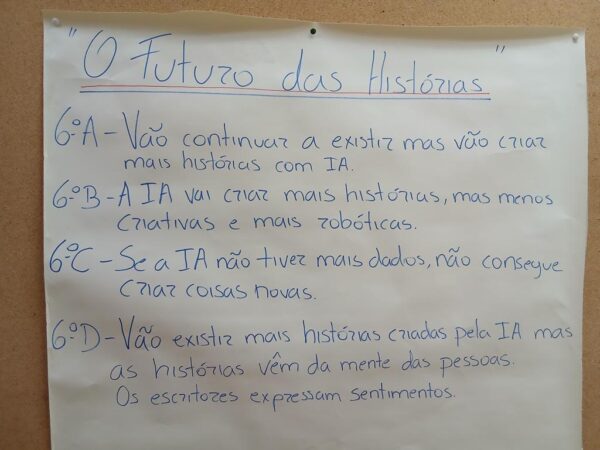 "O Futuro das Histórias"
6.ºA - Vão continuar a existir mas vão criar
mais histórias com IA.
6.ºB - A IA vai criar mais histórias, mas menos
criativas e mais robóticas.
6.ºC - Se a IA não tiver mais dados, não consegue
criar coisas novas.
6.ºD - Vão existir mais histórias criadas pela IA mas
as histórias vêm da mente das pessoas.
Os escritores expressam sentimentos.